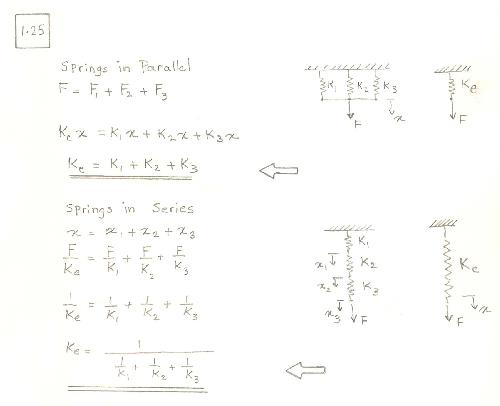 1.25
Springs in Parallel
F = F₁ + F₂ + F₃
Kₑ x = K₁ x + K₂ x + K₃ x
Kₑ = K₁ + K₂ + K₃
K₁ K₂ K₃ x F
Kₑ F
Springs in Series
x = x₁ + x₂ + x₃
F/Kₑ = F/K₁ + F/K₂ + F/K₃
1/Kₑ = 1/K₁ + 1/K₂ + 1/K₃
Kₑ = 1/(1/K₁ + 1/K₂ + 1/K₃)
K₁
x₁ K₂
x₂ K₃
x₃ F
Kₑ
x
F